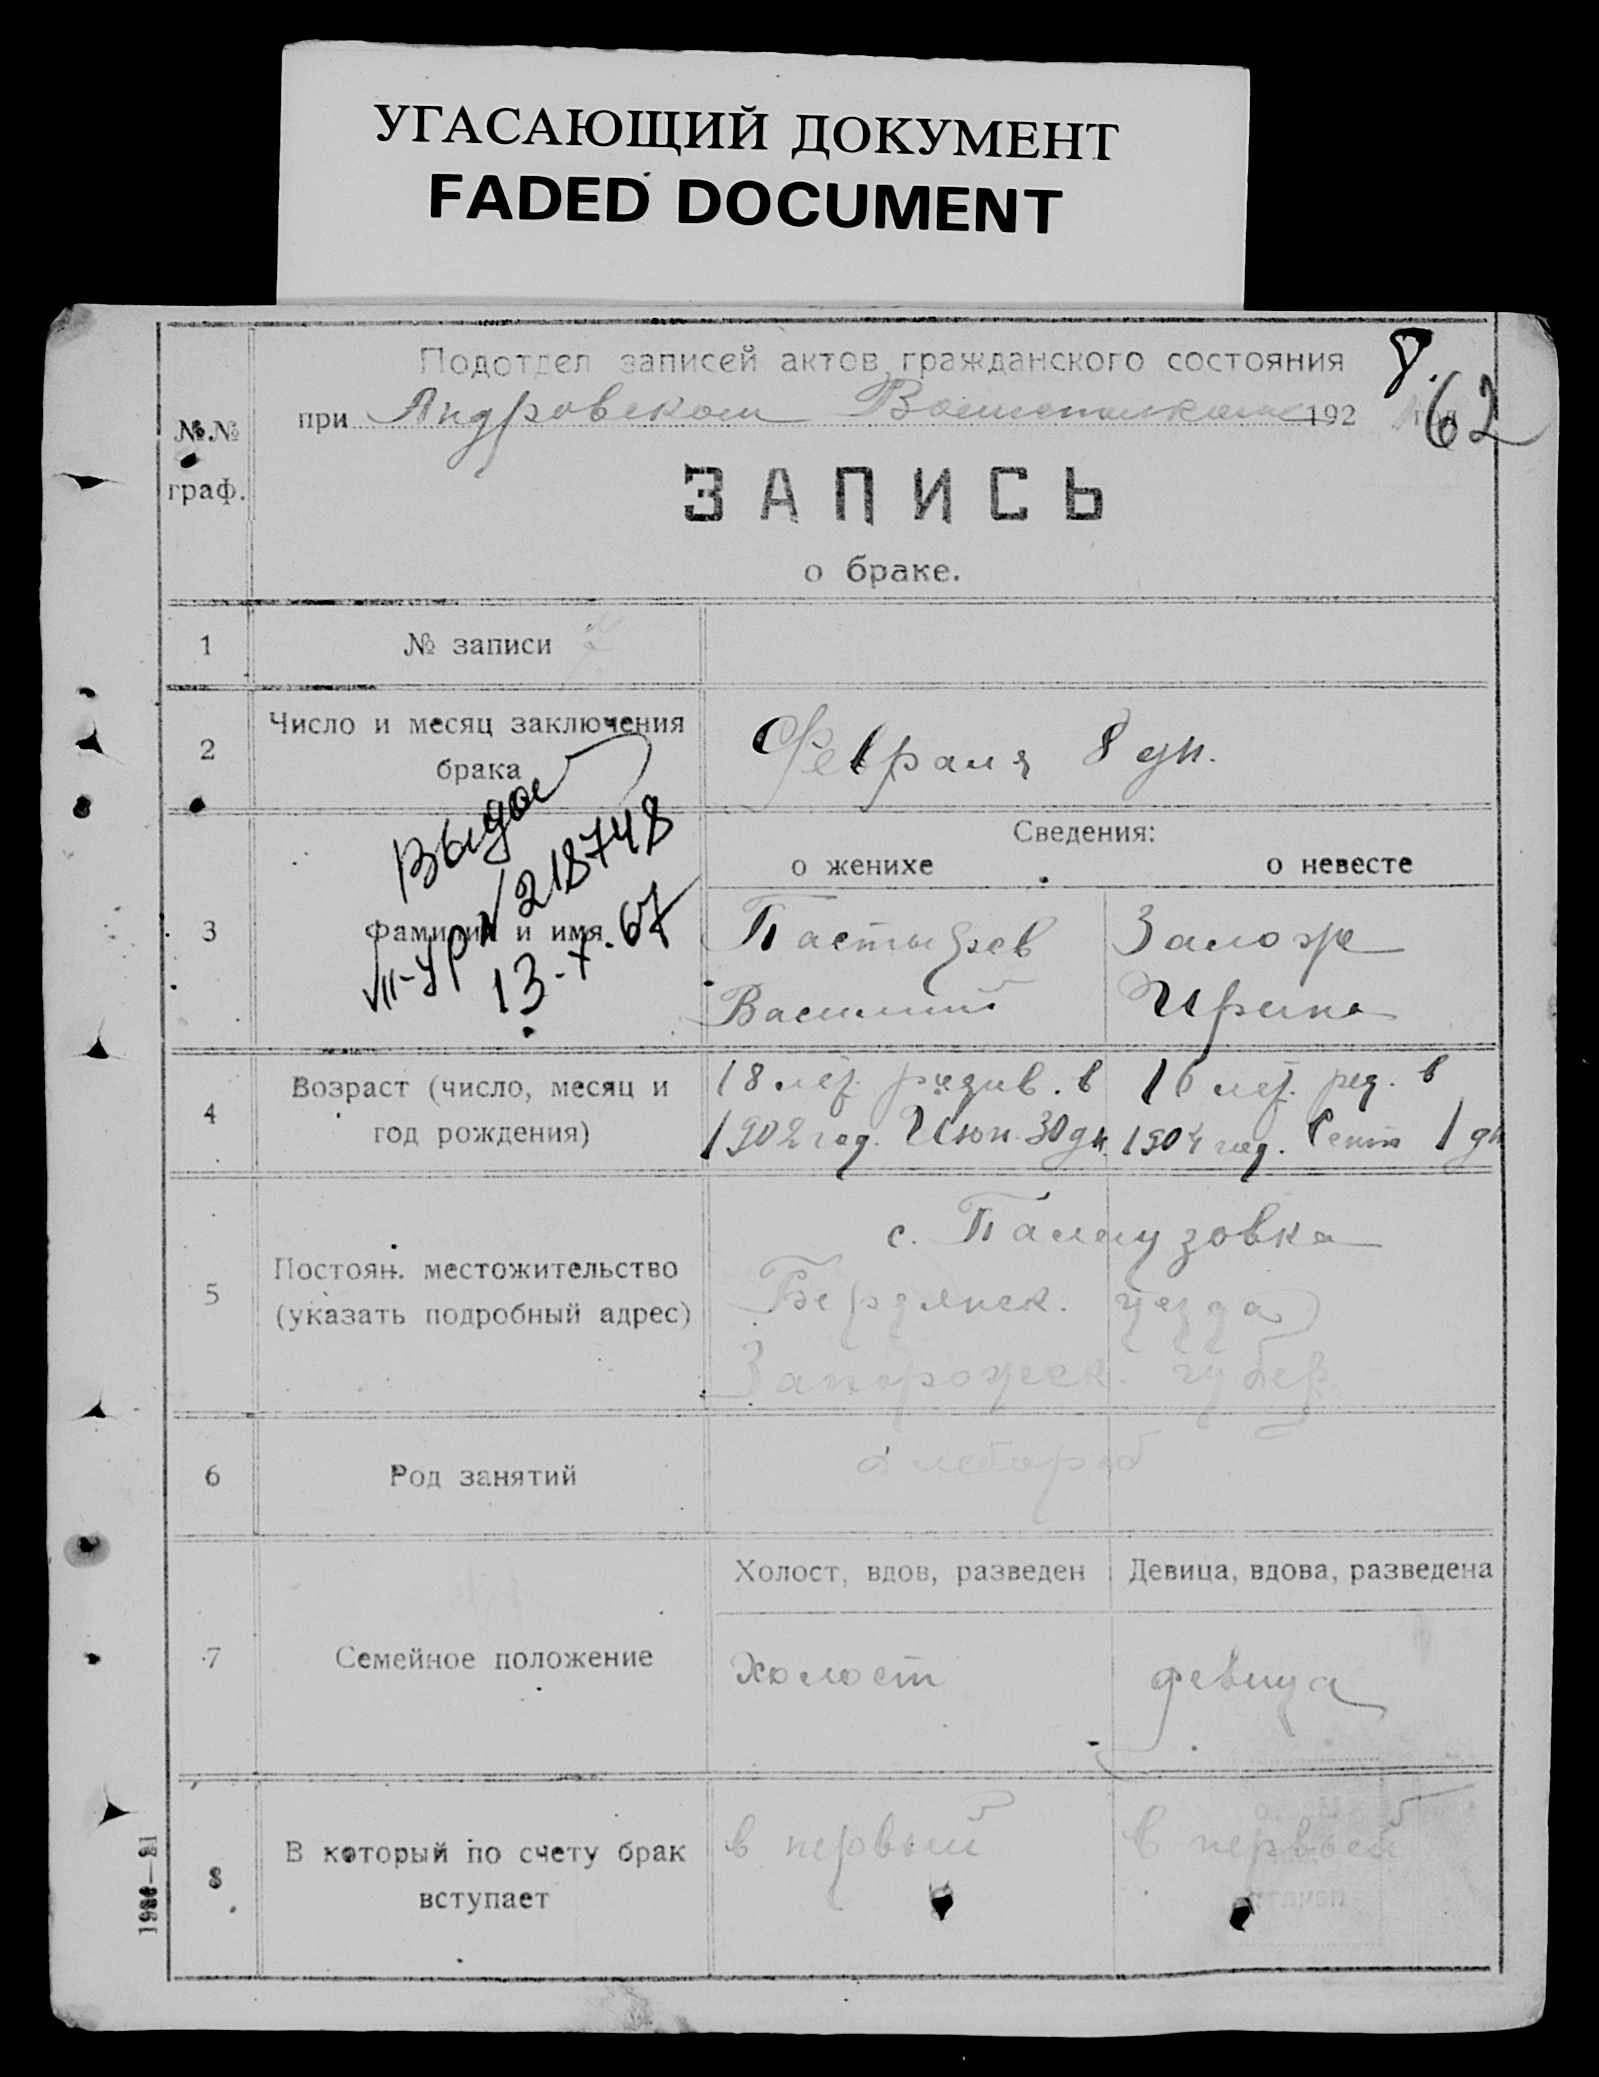 УГАСАЮЩИЙ ДОКУМЕНТ
FADED DOCUMENT
Подотдел записей актов гражданского состояния
8.
при Андровском 192 год
62
№.№ граф.
ЗАПИСЬ
о браке.
1 № записи
2 Число и месяц заключения брака
Февраля 8 дн.
Сведения:
о женихе о невесте
3 Фамилия и имя
Выдан
VII-УР № 218748
13-X-67
Пастырев
Василий
Залож
Ирина
4 Возраст (число, месяц и год рождения)
18 лет. в
1902 год. Июн. 30 дн.
16 лет. в
1904 год. Сент 1 дн
5 Постоян. местожительство
(указать подробный адрес)
с. Палаузовка
Бердянск. уезда
Запорожск. губер.
6 Род занятий
хлебороб
Холост, вдов, разведен
Девица, вдова, разведена
7 Семейное положение
Холост
девица
8 В который по счету брак
вступает
в первый
в первый